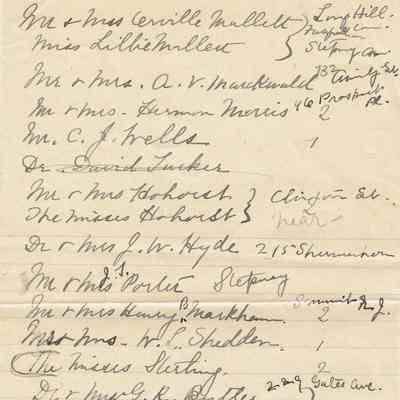 Mr & Miss Orville Mallett } Long Hill.
Miss Lillie Mallett } Stepney Conn
Mr & Mrs. A. V. Marckwald 132 Trinity
Mr & Mrs. Herman Morris 46 Prospect Pl. 2
Mr. C. J. Wells 1
Dr. David Tucker
Mr & Mrs Hohorst } Clinton St.
The Misses Hohorst } near
Dr & Mrs J. W. Hyde 215 Schermerhorn
Mr & Mrs J. S. Porter Stepney
Mr & Mrs Henry P. Markham. Summit N. J. 2
Mr & Mrs. W. L. Shedden. 1
The Misses Sterling. 2
Dr. & Mrs G. R. Butler 229 Gates Ave.